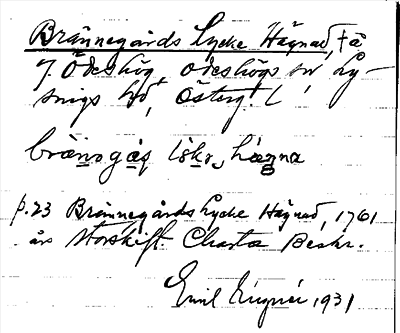 Brännegårds Lycke Hägnad, tä
7. Ödeshög, Ödeshögs sn, Ly-
sings hd, Österg. L
bränogåɋ lyke, hägna
p.23 Brännegårds Lycke Hägnad, 1761
års Storskift. Charta Beskr.
Emil 1931